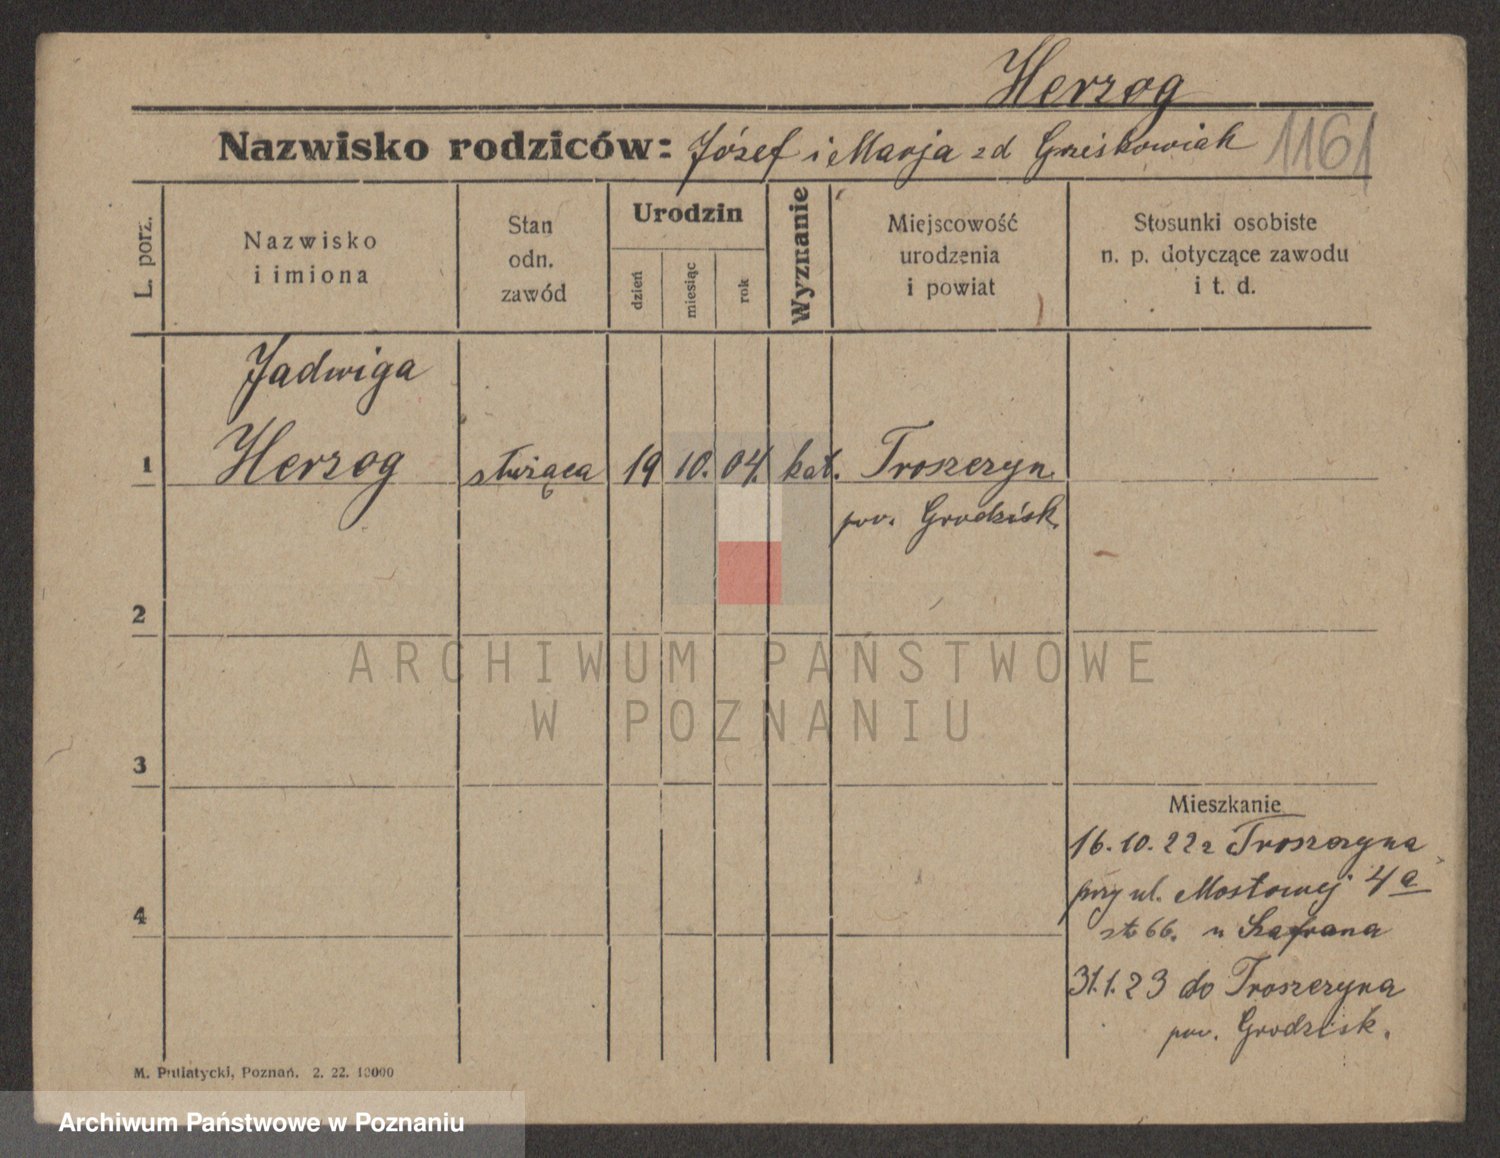 Herzog
Nazwisko rodziców: Józef i Marja zd Grześkowiak
1161
L. porz.
Nazwisko
i imiona
Stan
odn.
zawód
Urodzin
dzień
miesiąc
rok
Wyznanie
Miejscowość
urodzenia
i powiat
Stosunki osobiste
n. p. dotyczące zawodu
i t. d.
Jadwiga
1 Herzog służąca 19 10. 04. kat. Troszczyn
pow. Grodzisk.
2
ARCHIWUM PAŃSTWOWE
W POZNANIU
3
Mieszkanie
16.10.22 z Troszczyna
przy ul. Mostowej 4a
66. u Szafrana
4
31.1.23 do Troszczyna
pow. Grodzisk.
M. Putiatycki, Poznań. 2. 22. 10000
Archiwum Państwowe w Poznaniu